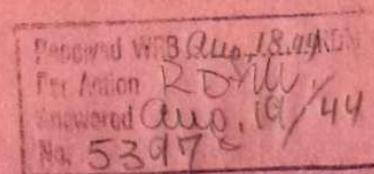 Received WRB Aug. 18.44
For Action
Answered Aug. 19/44
No. 5397